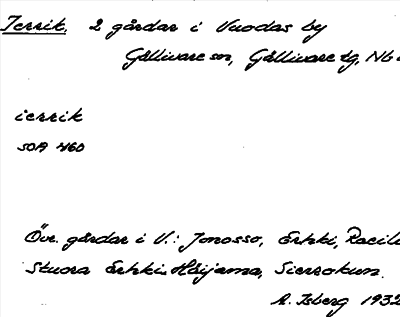 Ierrik. 2 gårdar i Vuodas by
Gällivare sn, Gällivare tg, Nb
ierrik
SOA 460
Övr. gårdar i V.: Jonosso, Erkki,
Stuora Erkki, Häijama, Sierrokun.
A. Isberg 1932